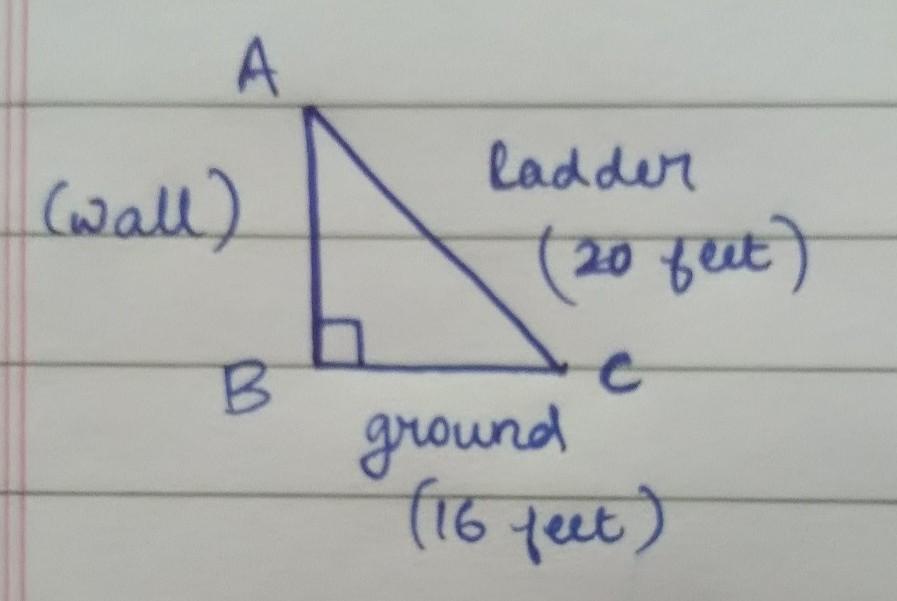 A
(wall)
ladder
(20 feet)
B
C
ground
(16 feet)